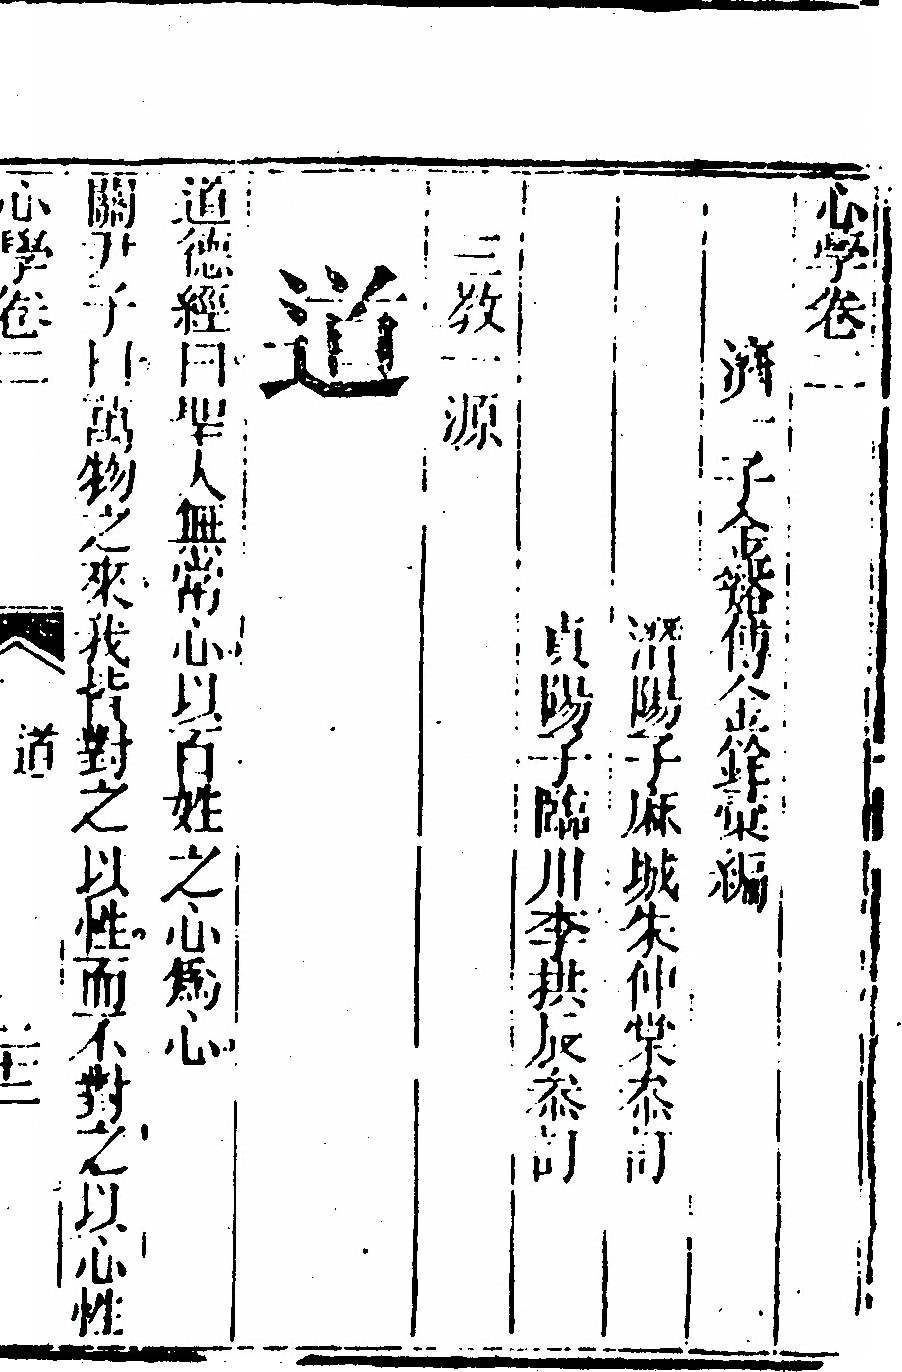 心學卷二
濟一子金谿傅金銓彙編
潛陽子麻城朱仲棠叅訂
貞陽子臨川李拱辰叅訂
三教一源
道
道德經曰聖人無常心以百姓之心爲心
關尹子曰萬物之來我皆對之以性而不對之以心性
心學卷二
道